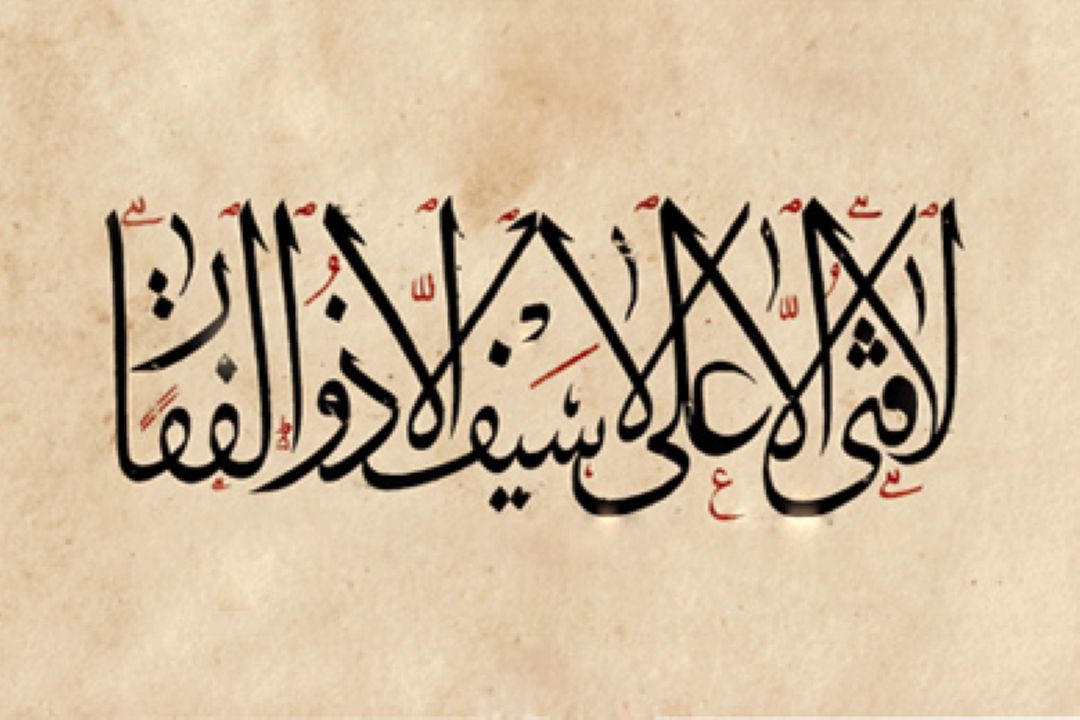 لا فتى الا على لا سيف الا ذو الفقار